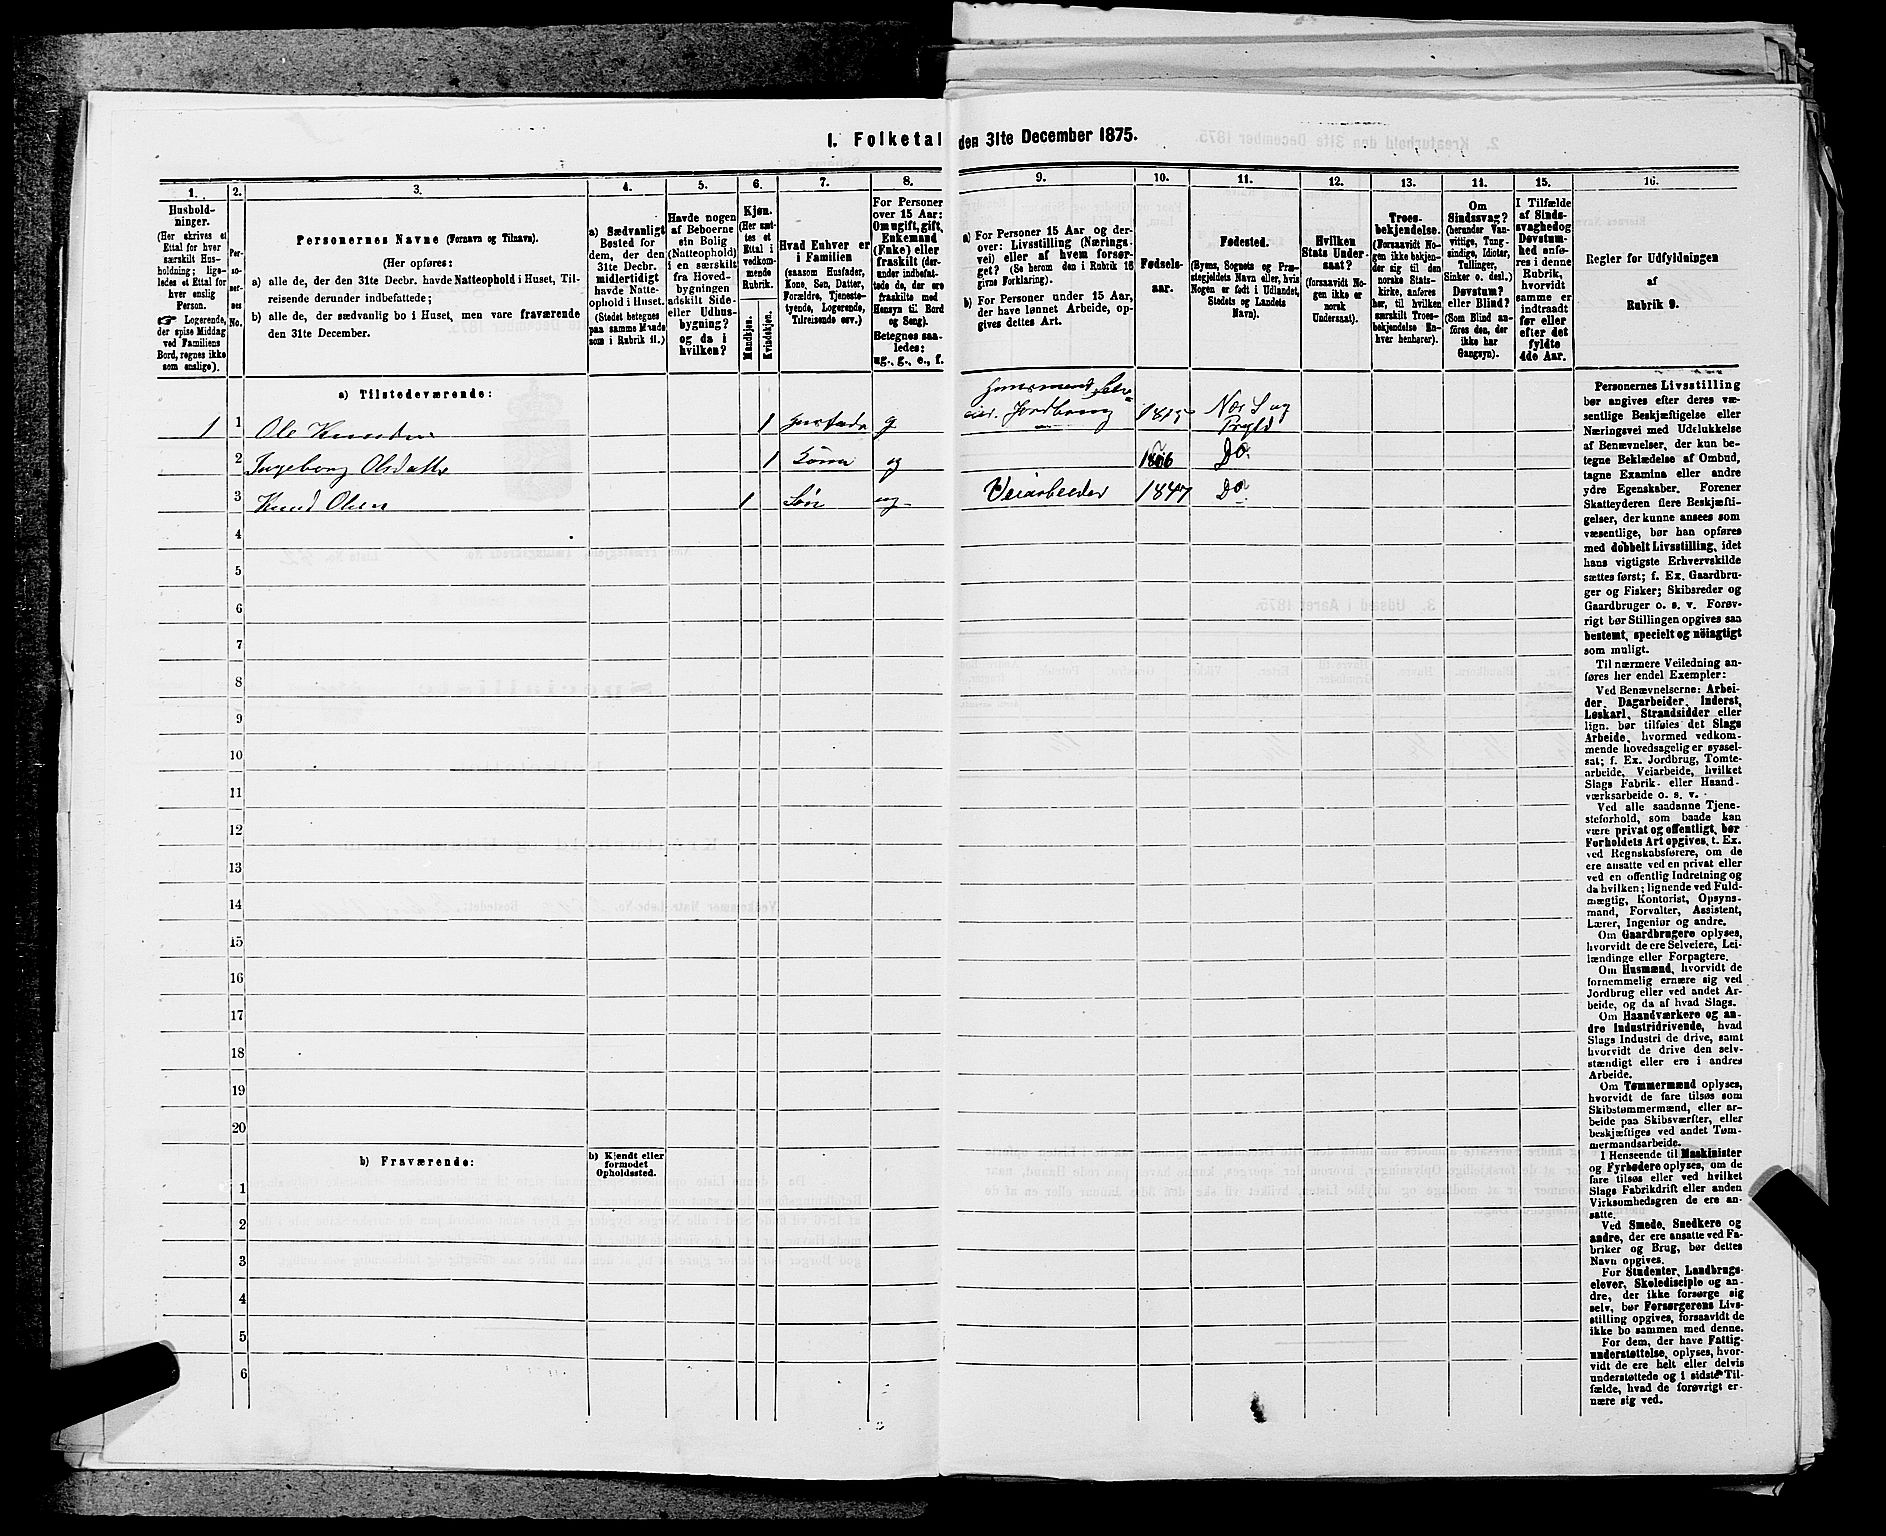 1. Folketal den 31te December 1875.
1. 2. 3. 4. 5. 6. 7. 8. 9. 10. 11. 12. 13. 14. 15. 16.
Hushold-
ninger.
(Her skrives et
Ettal for hver
særskilt Hus-
holdning; lige-
ledes et Ettal for
hver enslig
Person.
☞ Logerende,
der spise Middag
ved Familiens
Bord, regnes ikke
som enslige).
Per-
so-
ner-
nes
No.
Personernes Navne (Fornavn og Tilnavn).
(Her opføres:
a) alle de, der den 31te Decbr. havde Natteophold i Huset, Til-
reisende derunder indbefattede;
b) alle de, der sædvanlig bo i Huset, men vare fraværende
den 31te December.
a) Sædvanligt
Bosted for
dem, der den
31te Decbr.
midlertidigt
havde Natte-
ophold i Huset.
(Stedet betegnes
paa samme Maade
som i Rubrik 11.)
Havde nogen
af Beboerne
sin Bolig
(Natteophold)
i en særskilt
fra Hoved-
bygningen
adskilt Side-
eller Udhus-
bygning?
og da i
hvilken?
Kjøn.
(Her sæt-
tes et
Ettal i
vedkom-
mende
Rubrik.
Mandkjøn.
Kvindekjøn.
Hvad Enhver er
i Familien
(saasom Husfader,
Kone, Søn, Datter,
Forældre, Tjeneste-
tyende, Logerende,
Tilreisende osv.)
For Personer
over 15 Aar:
Om ugift, gift,
Enkemand
(Enke) eller
fraskilt (der-
under indbefat-
tede de, der ere
fraskilte med
Hensyn til Bord
og Seng).
Betegnes saa-
ledes:
ug., g., e., f.
a) For Personer 15 Aar og der-
over: Livsstilling (Nærings-
vei) eller af hvem forsør-
get? (Se herom den i Rubrik 16
givne Forklaring).
b) For Personer under 15 Aar,
der have lønnet Arbeide, op-
gives dettes Art.
Fødsels-
aar.
Fødested.
(Byens, Sognets og Præ-
stegjeldets Navn eller, hvis
Nogen er født i Udlandet,
Stedets og Landets
Navn).
Hvilken
Stats Under-
saat?
(forsaavidt No-
gen ikke er
norsk
Undersaat).
Troes-
bekjendelse.
(Forsaavidt No-
gen ikke bekjen-
der sig til den
norske Stats-
kirke, anføres
her, til hvilken
særskilt Troes-
bekjendelse En-
hver henhører).
Om
Sindssvag?
(herunder Van-
vittige, Tung-
sindige, Idioter,
Tullinger,
Sinker o. desl.)
Døvstum?
eller Blind?
(Som Blind an-
føres den, der
ikke har
Gangsyn).
I Tilfælde
af Sinds-
svaghed og
Døvstum-
hed anfø-
res i denne
Rubrik,
hvorvidt
samme er
indtraadt
før eller
efter det
fyldte
4de Aar.
Regler for Udfyldningen
af
Rubrik 9.
a) Tilstedeværende:
1 1 Ole Knudsen 1 Husfader g Huusmand
Jordbrug
2 Ingeborg Olsdatter 1 Kone 1806 Do.
3 Knud Olsen 1 Søn ug Veiarbeider 1847 Do
4
5
6
7
8
9
10
11
12
13
14
15
16
17
18
19
20
b) Fraværende:
b) Kjendt eller
formodet
Opholdssted.
1
2
3
4
5
6
Personernes Livsstilling
bør angives efter deres væ-
sentlige Beskjæftigelse eller
Næringsvei med Udelukkelse
af Benævnelser, der kun be-
tegne Beklædelse af Ombud,
tagne Examina eller andre
ydre Egenskaber. Forener
Skatteyderen flere Beskjæfti-
gelser, der kunne ansees som
væsentlige, bør han opføres
med dobbelt Livsstilling, idet
hans vigtigste Erhvervskilde
sættes først; f. Ex. Gaardbru-
ger og Fisker; Skibsreder og
Gaardbruger o. s. v. Forøv-
rigt bør Stillingen opgives saa
bestemt, specielt og nöiagtigt
som muligt.
Til nærmere Veiledning an-
føres her endel Exempler:
Ved Benævnelserne: Arbei-
der, Dagarbeider, Inderst,
Løskarl, Strandsidder eller
lign. bør tilføies det Slags
Arbeide, hvormed vedkom-
mende hovedsagelig er syssel-
sat; f. Ex. Jordbrug, Tomte-
arbeide, Veiarbeide, hvilket
Slags Fabrik- eller Haand-
værksarbeide o. s. v.
Ved alle saadanne Tjene-
steforhold, som baade kan
være privat og offentligt, bør
Forholdets Art opgives, t. Ex.
ved Regnskabsførere, om de
ere ansatte ved en privat eller
ved en offentlig Indretning og
da hvilken; lignende ved Fuld-
mægtig, Kontorist, Opsyns-
mand, Forvalter, Assistent,
Lærer, Ingeniør og andre.
Om Gaardbrugere oplyses,
hvorvidt de ere Selveiere, Lei-
lændinge eller Forpagtere.
Om Husmænd, hvorvidt de
fornemmelig ernære sig ved
Jordbrug eller ved andet Ar-
beide, og da af hvad Slags.
Om Haandværkere og an-
dre Industridrivende, hvad
Slags Industri de drive, samt
hvorvidt de drive den selv-
stændigt eller ere i andres
Arbeide.
Om Tømmermænd oplyses,
hvorvidt de fare tilsøs som
Skibstømmermænd, eller ar-
beide paa Skibsværfter, eller
beskjæftiges ved andet Tøm-
mermandsarbeide.
I Henseende til Maskinister
og Fyrbødere oplyses, om de
fare tilsøs eller ved hvilket
Slags Fabrikdrift eller anden
Virksomhedsgren de ere an-
satte.
Ved Smede, Snedkere og
andre, der ere ansatte ved Fa-
briker og Brug, bør dettes
Navn opgives.
For Studenter, Landbrugs-
elever, Skoledisciple og an-
dre, der ikke forsørge sig
selv, bør Forsørgerens Livs-
stilling opgives, forsaavidt de
ikke bo sammen med denne.
For dem, der have Fattig-
understøttelse, oplyses, hvor-
vidt de ere helt eller delvis
understøttede og i sidste Til-
fælde, hvad de forøvrigt er-
nære sig ved.